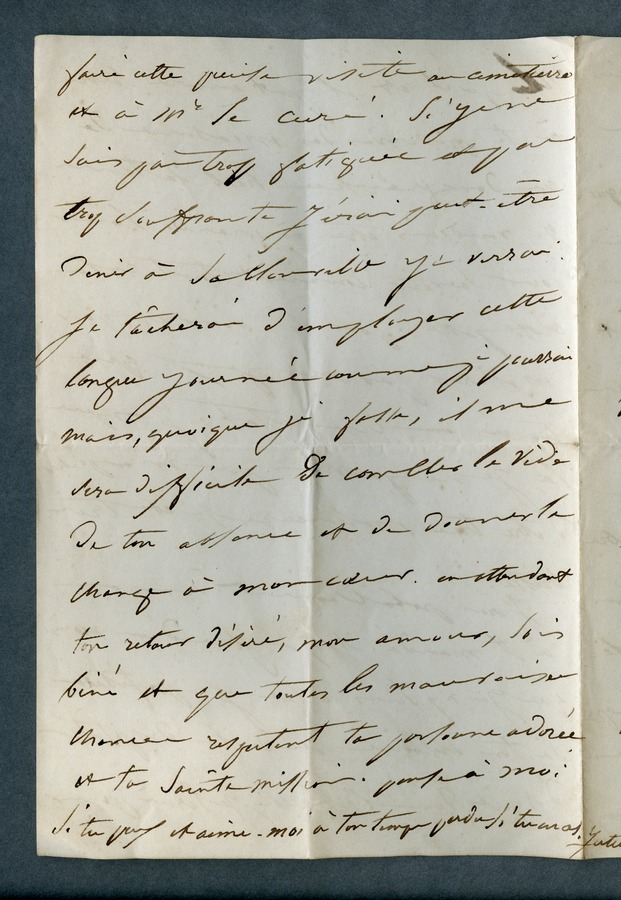 faire cette pieuse visite au cimetière
et à Mr le curé. Si je ne
suis pas trop fatiguée et pas
trop souffrante j'irai peut-être
dîner à Sablonville je verrai.
Je tâcherai d'employer cette
longue journée comme je pourrai
mais, quoique je fasse, il me
sera difficile de combler le vide
de ton absence et de donner le
change à mon cœur. en attendant
ton retour désiré, mon amour, sois
béni et que toutes les mauvaises
chances respectent ta personne adorée
et ta sainte mission. pense à moi
si tu peux et aime-moi à ton temps perdu si tu en as.